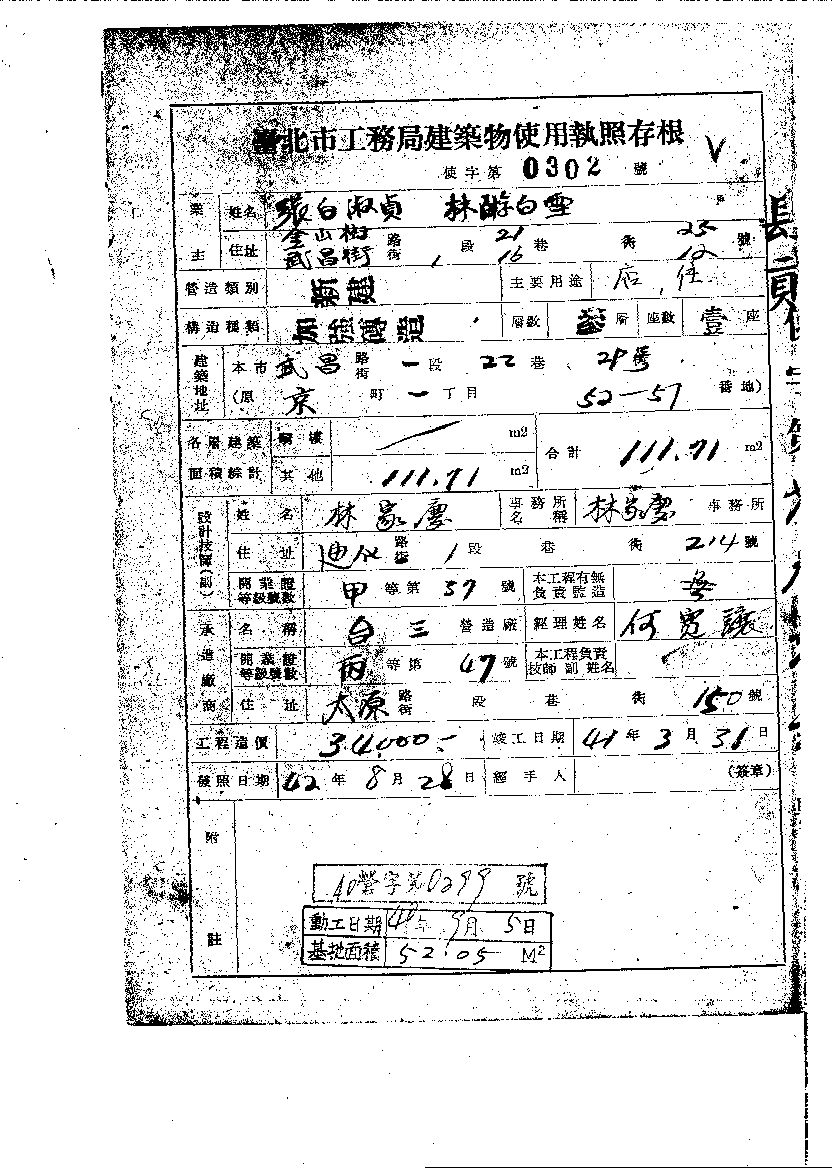 臺北市工務局建築物使用執照存根
使字第 0302 號
業主 姓名 張白淑貞 林游白雪
住址 金山街 路街 段 21 巷 衖 25 號
武昌街 1 16 12
營造類別 新建 主要用途 店,住
構造種類 加強磚造 層數 叁層 座數 壹座
建築地址 本市武昌路街一段22巷 29號
(原 京 町一丁目 52—57 番地)
各層建築面積綜計 騎樓 m2 合計 111.71 m2
其他 111.71 m2
設計技師(副) 姓名 林家慶 事務所名稱 林家慶 事務所
住址 迪化路街 1 段 巷 衖 214 號
開業證等級號數 甲等第 57 號 本工程有無負責監造 無
承造廠商 名稱 台三 營造廠 經理姓名 何寬讓
開業證等級號數 丙等第 47 號 本工程負責技師副姓名
住址 太原路街 段 巷 衖 150 號
工程造價 34000.- 竣工日期 41年3月31日
發照日期 42年8月28日 經手人 (簽章)
附註
40營字第0299號
動工日期 40年9月5日
基地面積 52.05 M²